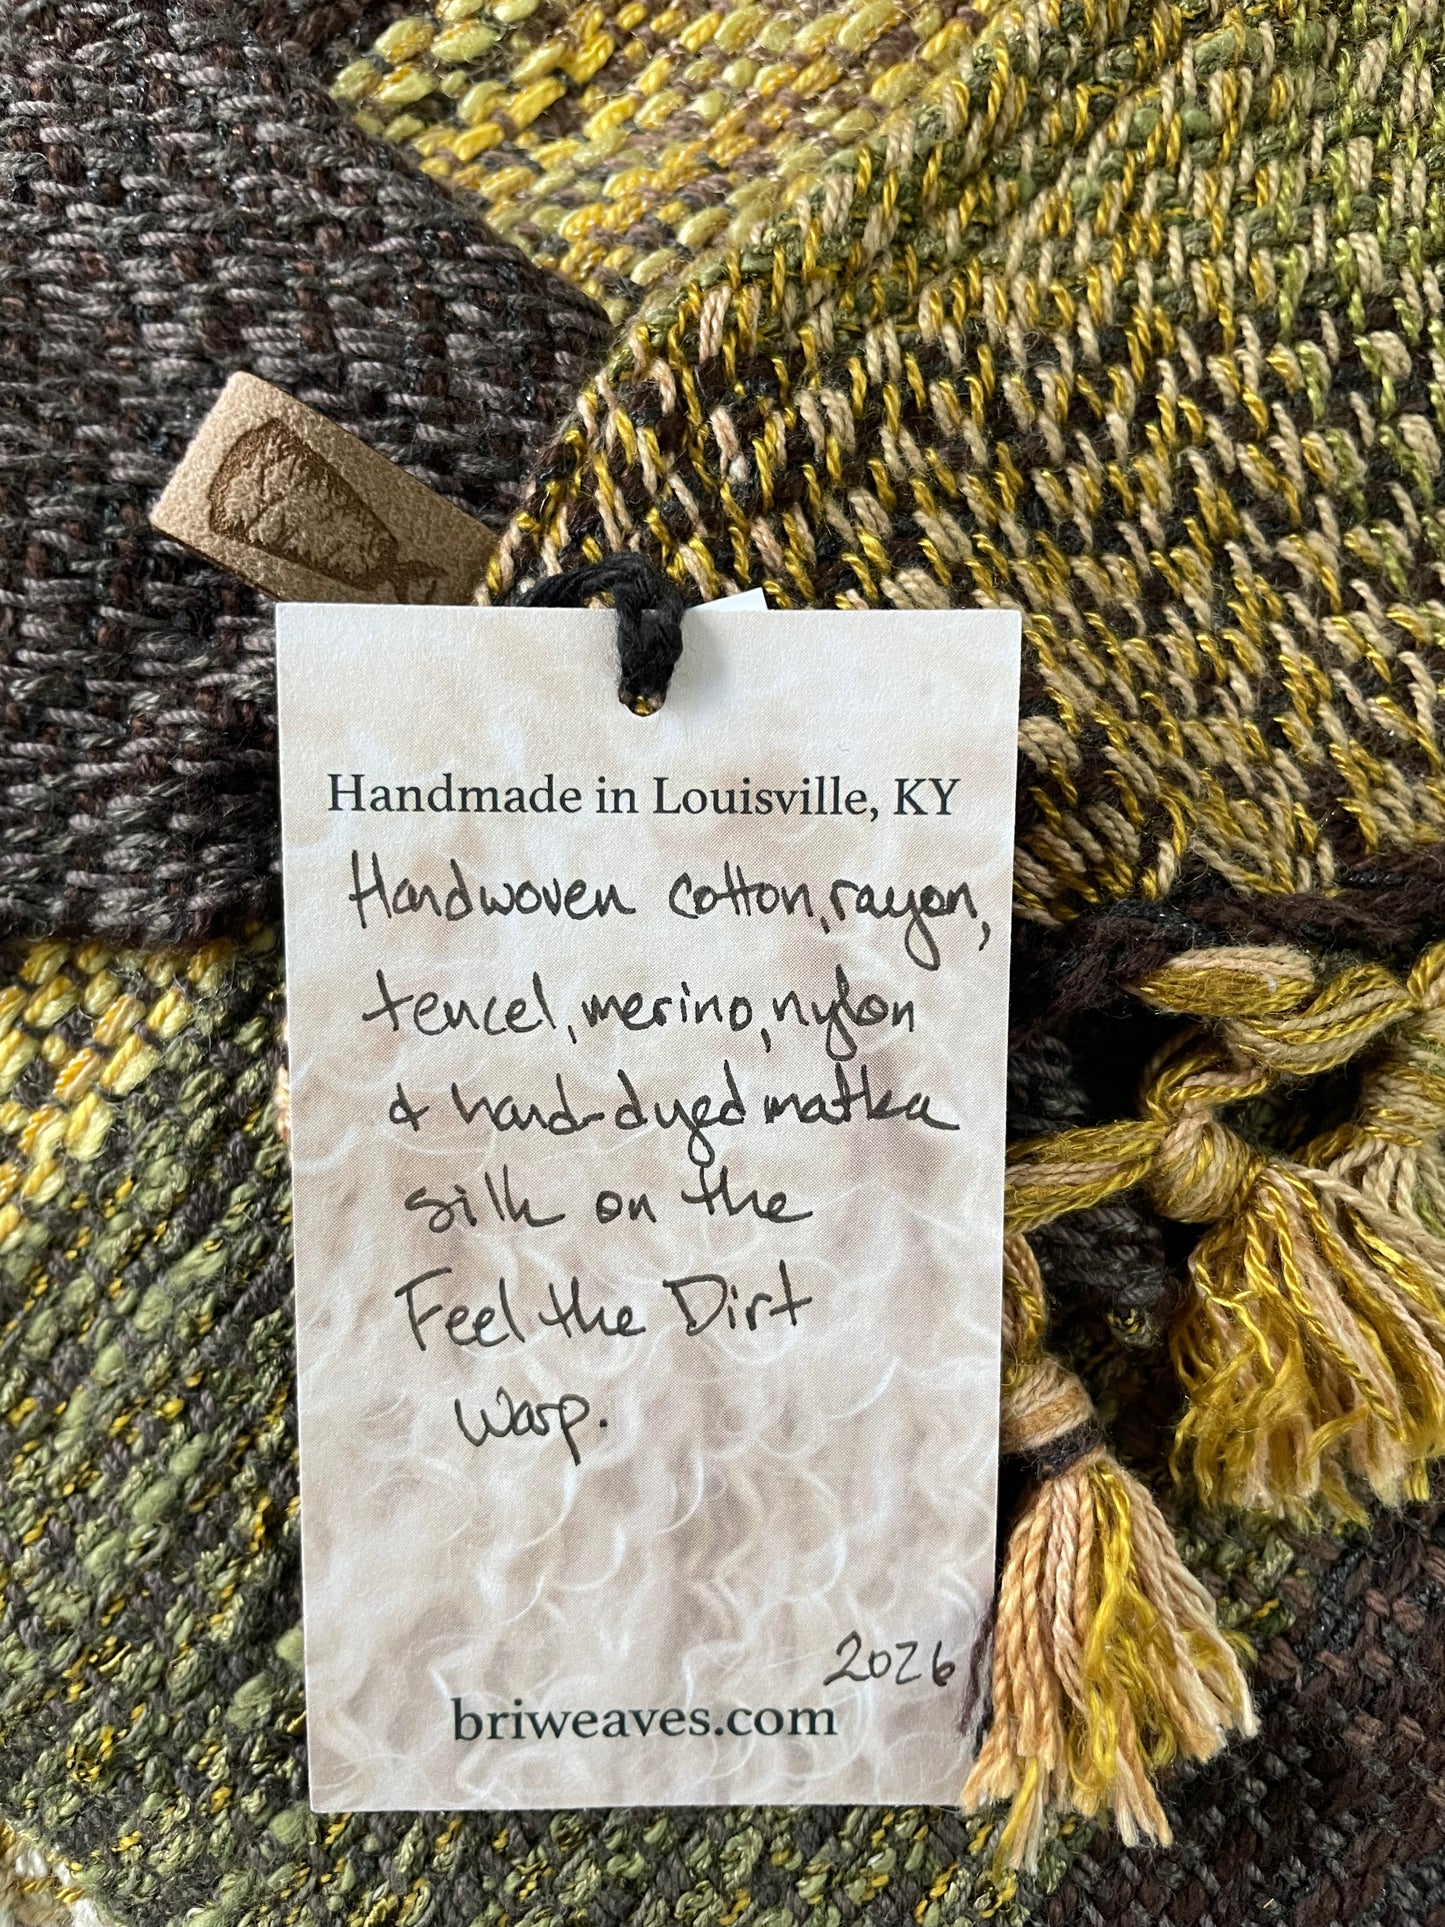 Handmade in Louisville, KY
Handwoven cotton, rayon,
tencel, merino, nylon
& hand-dyed matka
silk on the
Feel the Dirt
warp.
2026
briweaves.com